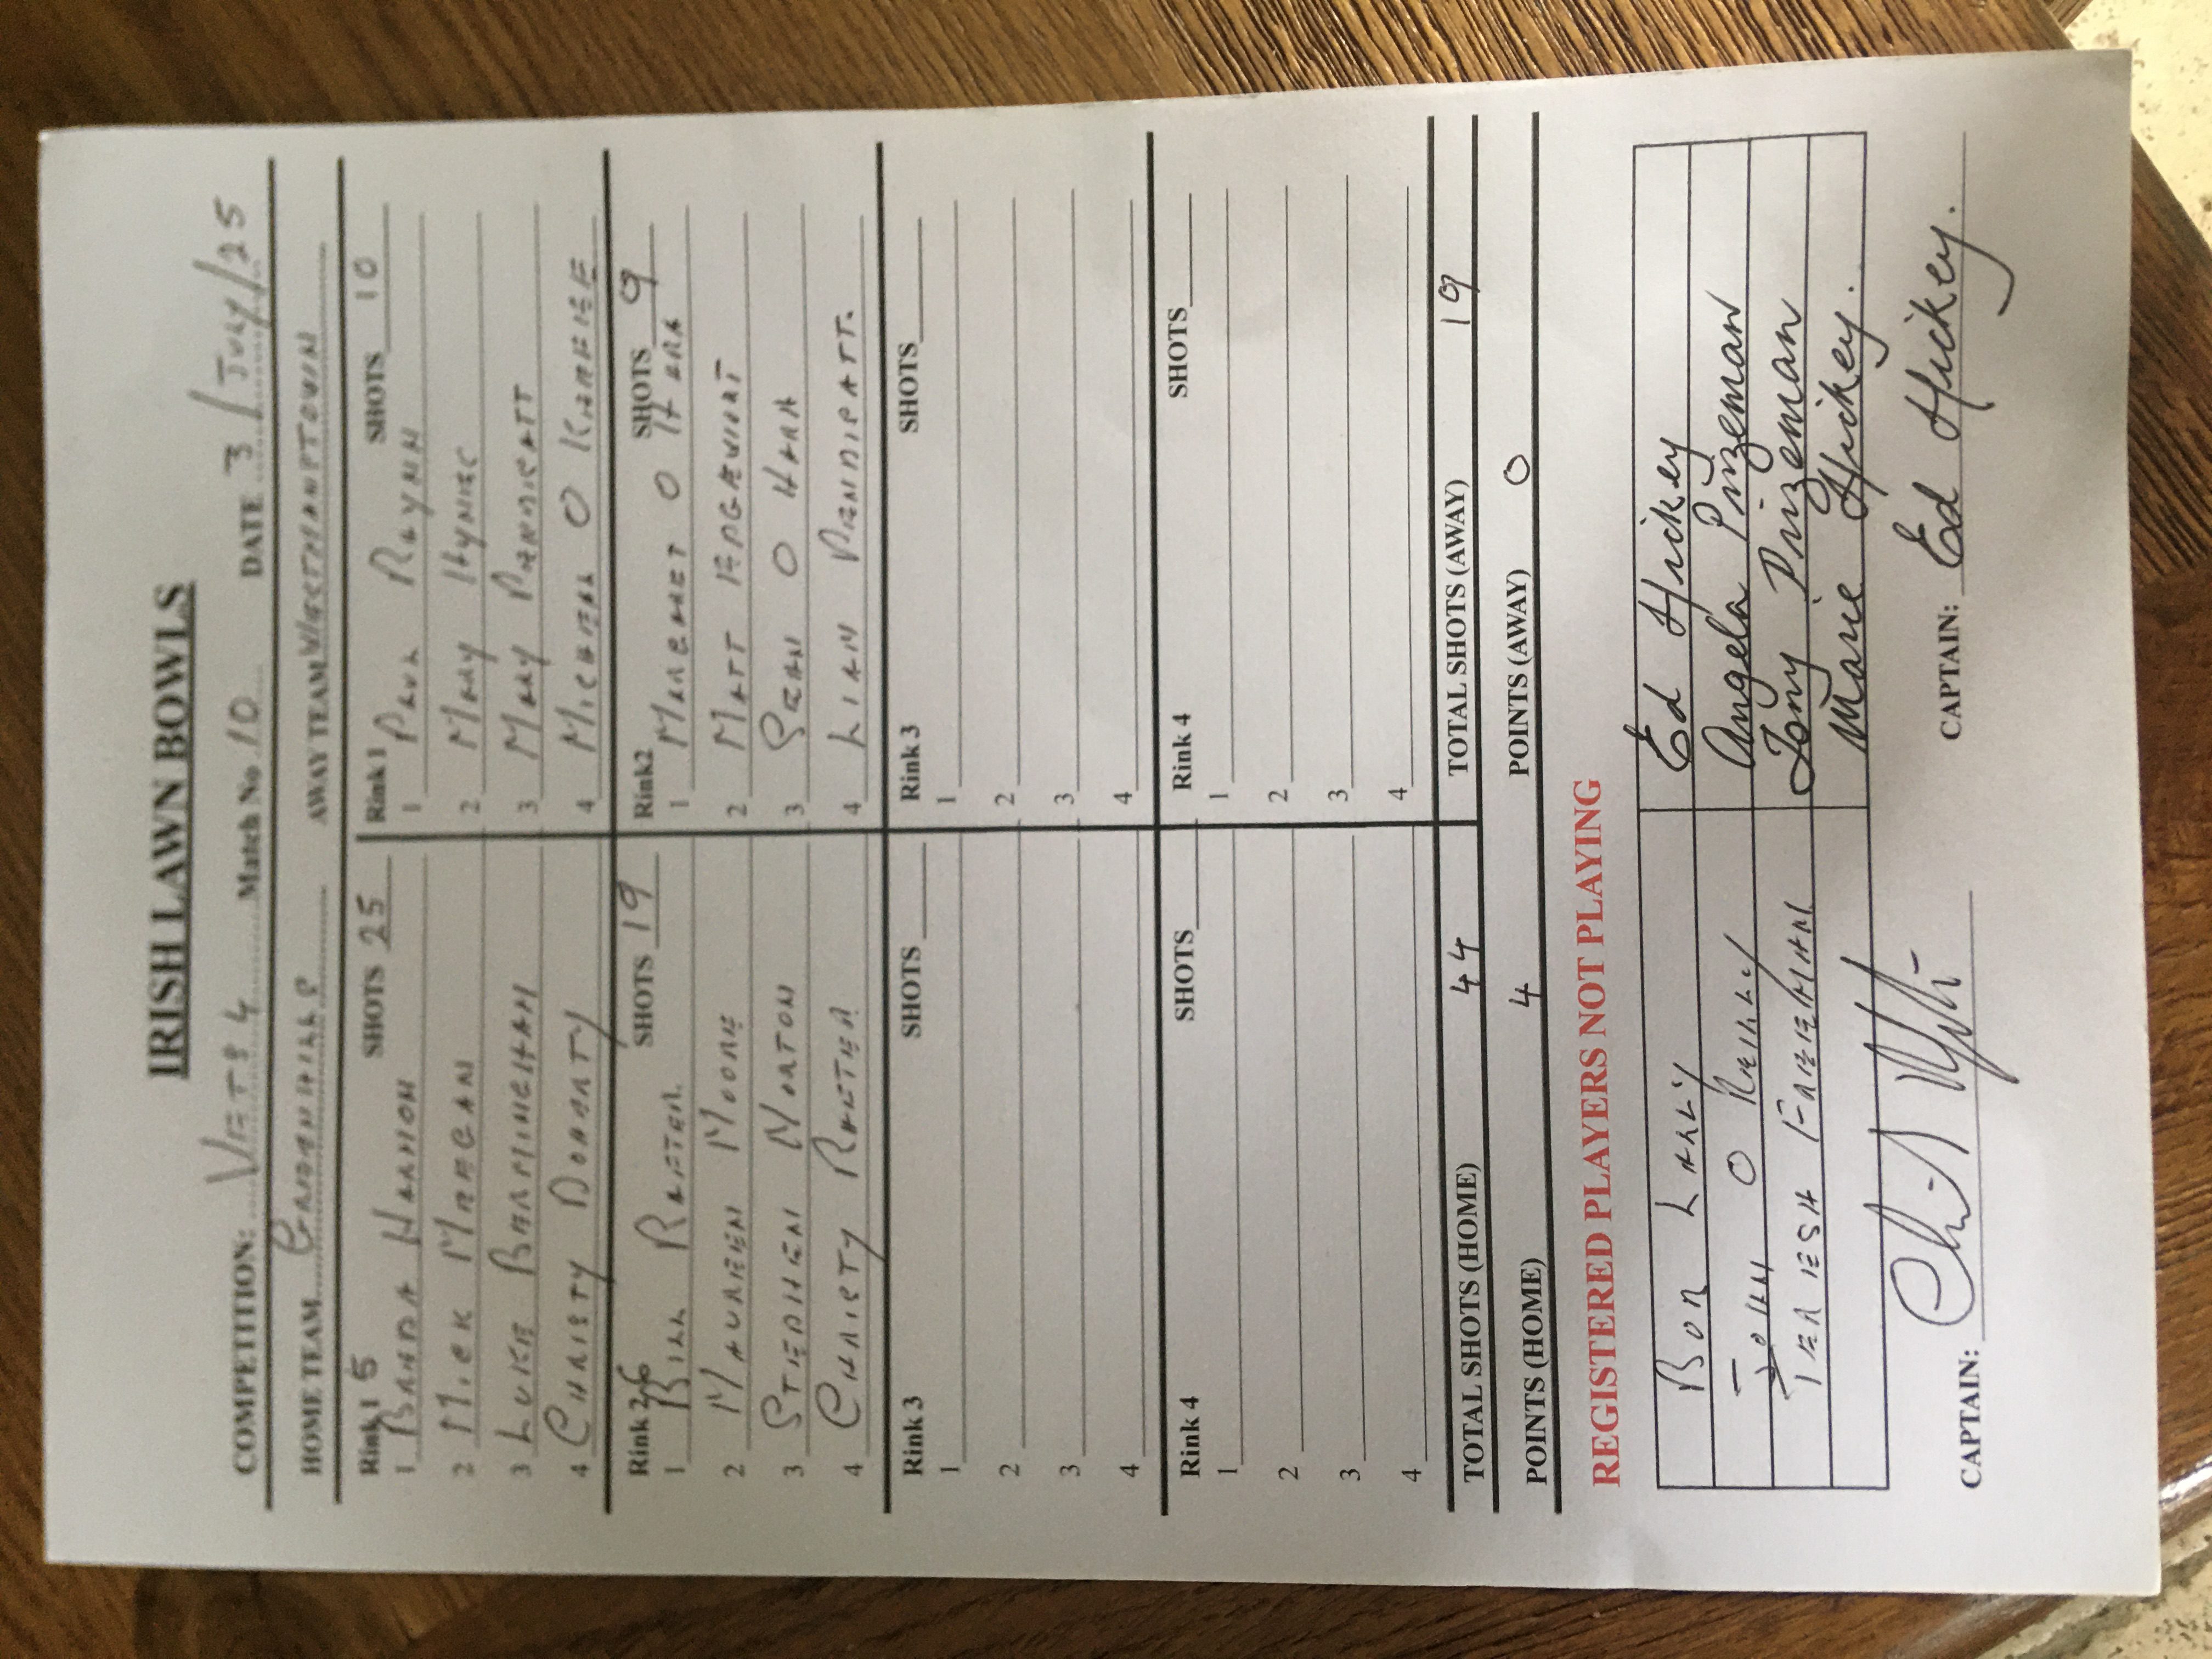 IRISH LAWN BOWLS
COMPETITION: VETS 4 Match No. 10 DATE 3/JULY/25
HOME TEAM AWAY TEAM
Rink 1 5 SHOTS 25 Rink 1 SHOTS 10
1 HARMON 1 PAUL
2 MICK 2 MARY
3 LUKE BERMINGHAM 3 MARY PENDRATT
4 CHRISTY DOHARTY 4 MICHEAL O KANEFE
Rink 2 6 SHOTS 19 Rink2 SHOTS 9
1 BILL RAFTER 1 MARGARET O HARA
2 MAUREEN MOORE 2 MATT EDGEWORT
3 STEPHEN NORTON 3 SEAN O HARA
4 CHRISTY RAFTER 4 LIAM PENDRATT.
Rink 3 SHOTS Rink 3 SHOTS
1 1
2 2
3 3
4 4
Rink 4 SHOTS Rink 4 SHOTS
1 1
2 2
3 3
4 4
TOTAL SHOTS (HOME) 44 TOTAL SHOTS (AWAY) 19
POINTS (HOME) 4 POINTS (AWAY) 0
REGISTERED PLAYERS NOT PLAYING
BOB LALLY Ed Hickey
JOHN O REILLY Angela Prizeman
Tony Prizeman
Marie Hickey.
CAPTAIN: CAPTAIN: Ed Hickey.